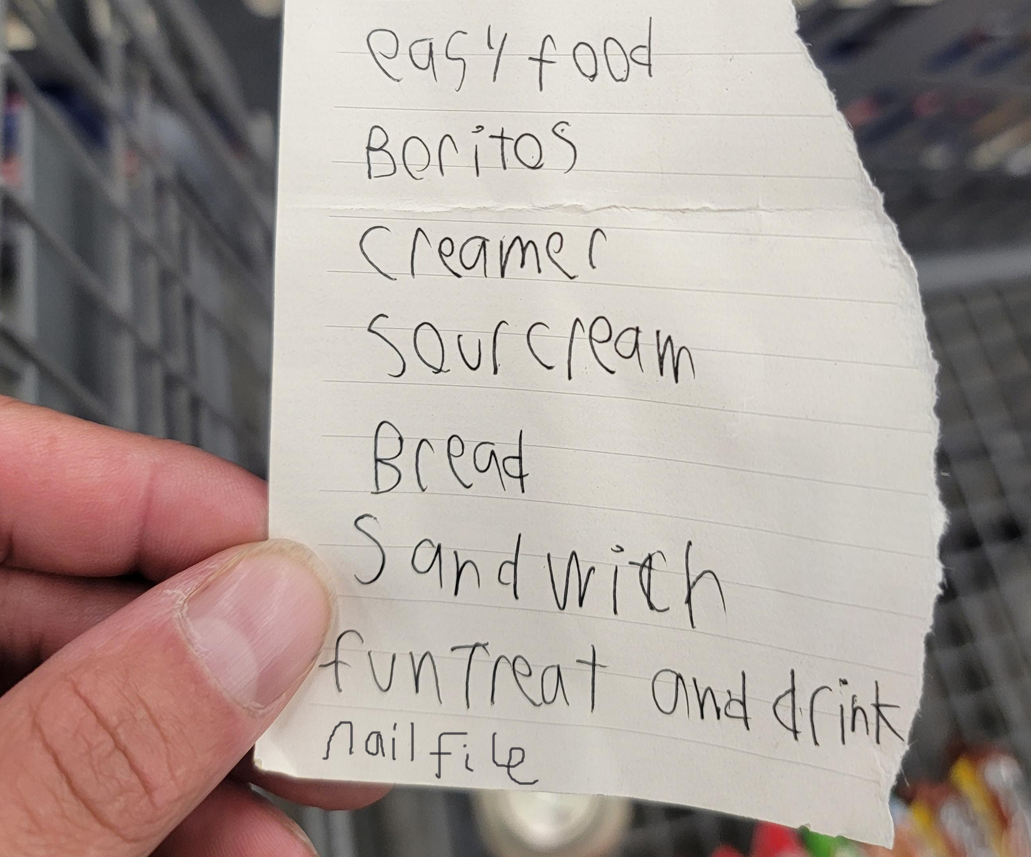 easy food
Boritos
creamer
Sour cream
Bread
Sandwich
fun Treat and drink
nail file